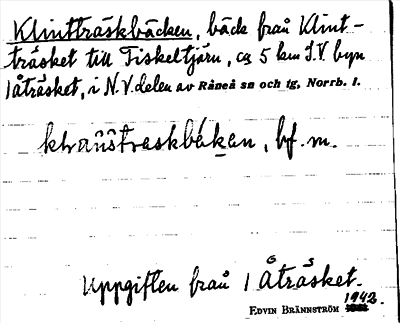 Klintträskbäcken, bäck från Klint-
träsket till Fiskeltjärn, ca 5 km S.V. byn
1 Åträsket, i N.V. delen av Råneå sn och tg, Norrb. l.
bf. m.
Uppgiften från 1 Åträsket.
6 3
1942.
EDVIN BRÄNNSTRÖM